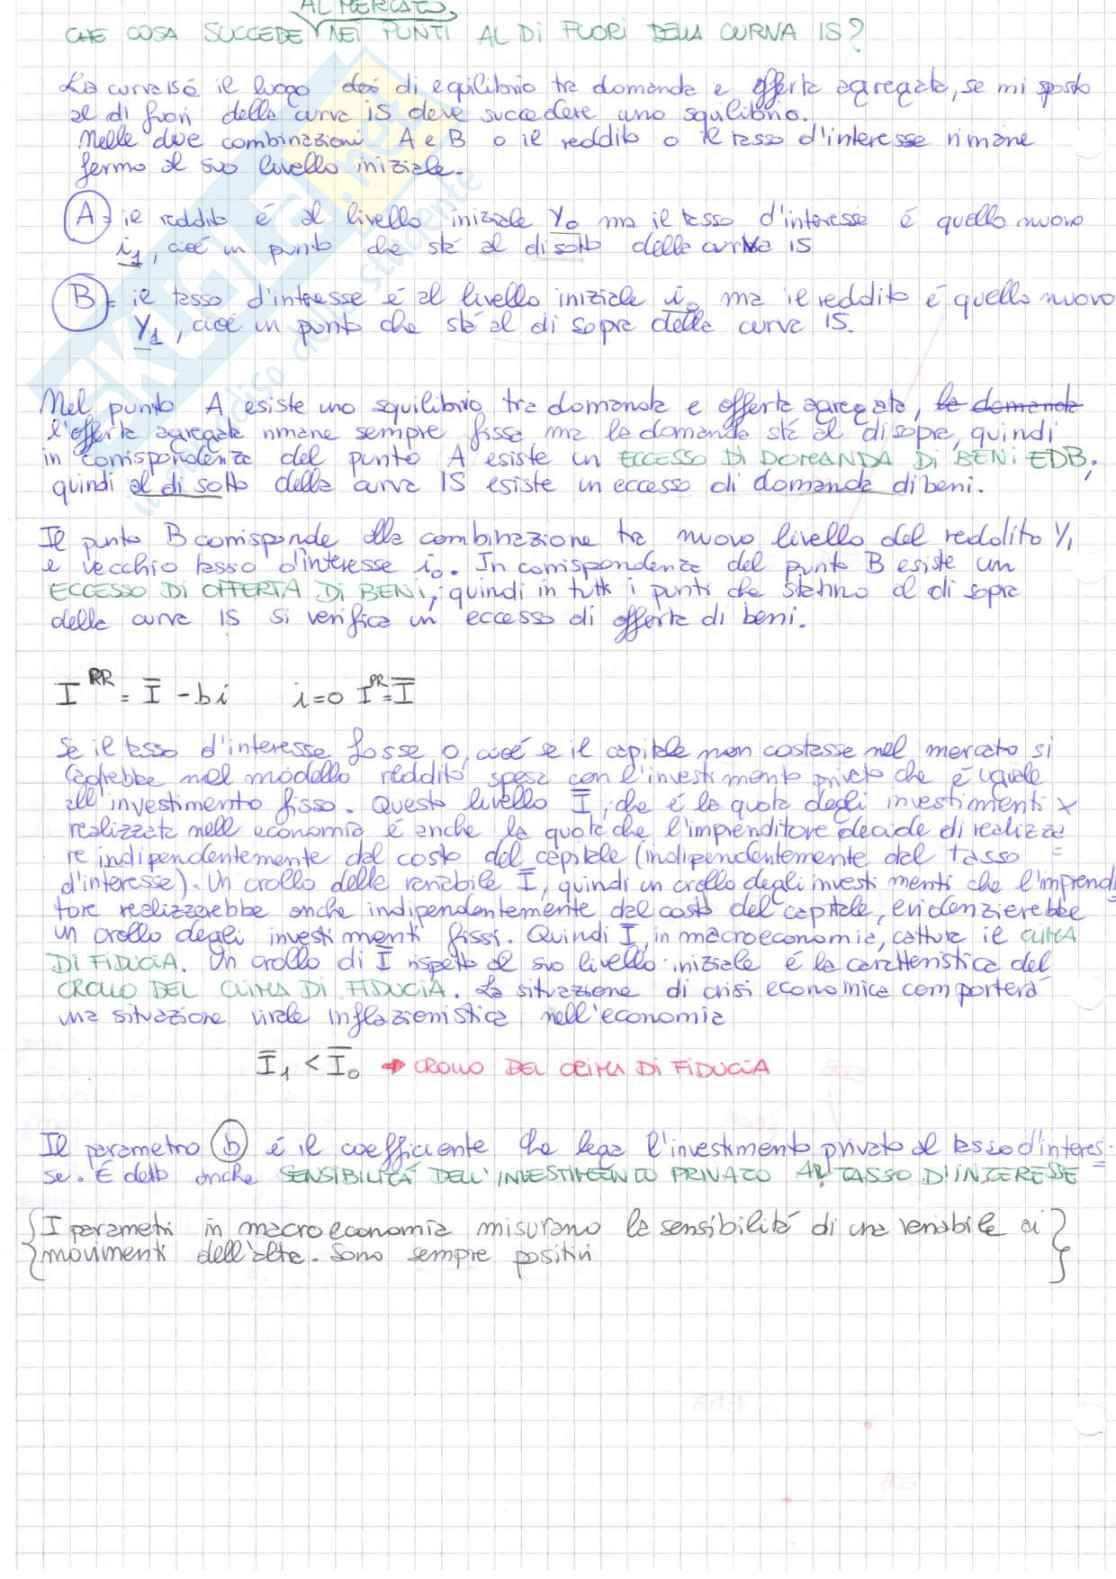 AL MERCATO,
CHE COSA SUCCEDE NEI PUNTI AL DI FUORI DELLA CURVA IS?
La curva IS é il luogo dei di equilibrio tra domanda e offerta agregata, se mi sposto
al di fuori della curva IS deve succedere uno squilibrio.
Nelle due combinazioni A e B o il reddito o il tasso d'interesse rimane
fermo al suo livello iniziale.
A = il reddito é al livello iniziale Y0 ma il tasso d'interesse é quello nuovo
i1, cioé un punto che stá al di sotto della curva IS
B = il tasso d'interesse é al livello iniziale i0 ma il reddito é quello nuovo
Y1, cioé un punto che stá al di sopra della curva IS.
Nel punto A esiste uno squilibrio tra domanda e offerta agregata, la domanda
l'offerta agregata rimane sempre fissa, ma la domanda stá al di sopra, quindi
in corrispondenza del punto A esiste un ECCESSO DI DOMANDA DI BENI EDB,
quindi al di sotto della curva IS esiste un eccesso di domanda di beni.
Il punto B corrisponde alla combinazione tra nuovo livello del reddito Y1
e vecchio tasso d'interesse i0. In corrispondenza del punto B esiste un
ECCESSO DI OFFERTA DI BENI, quindi in tutti i punti che stanno al di sopra
della curva IS si verifica un eccesso di offerta di beni.
I^PR = Ī - bi i=0 I^PR = Ī
Se il tasso d'interesse fosse 0, cioé se il capitale non costasse nel mercato si
cadrebbe nel modello reddito spesa con l'investimento privato che é uguale
all'investimento fisso. Questo livello Ī, che é la quota degli investimenti x
realizzata nell'economia é anche la quota che l'imprenditore decide di realizza
re indipendentemente dal costo del capitale (indipendentemente dal tasso =
d'interesse). Un crollo della variabile Ī, quindi un crollo degli investimenti che l'imprendi
tore realizzerebbe anche indipendentemente dal costo del capitale, evidenzierebbe
un crollo degli investimenti fissi. Quindi Ī, in macroeconomia, cattura il CLIMA
DI FIDUCIA. Un crollo di Ī rispetto al suo livello iniziale é la caratteristica del
CROLLO DEL CLIMA DI FIDUCIA. La situazione di crisi economica comporterá
una situazione virale inflazionistica nell'economia
Ī1 < Ī0 → CROLLO DEL CLIMA DI FIDUCIA
Il parametro b é il coefficiente che lega l'investimento privato al tasso d'interes=
se. É detto anche SENSIBILITÁ DELL'INVESTIMENTO PRIVATO AL TASSO D'INTERESSE
{I parametri in macroeconomia misurano la sensibilitá di una variabile ai
movimenti dell'altra. Sono sempre positivi}